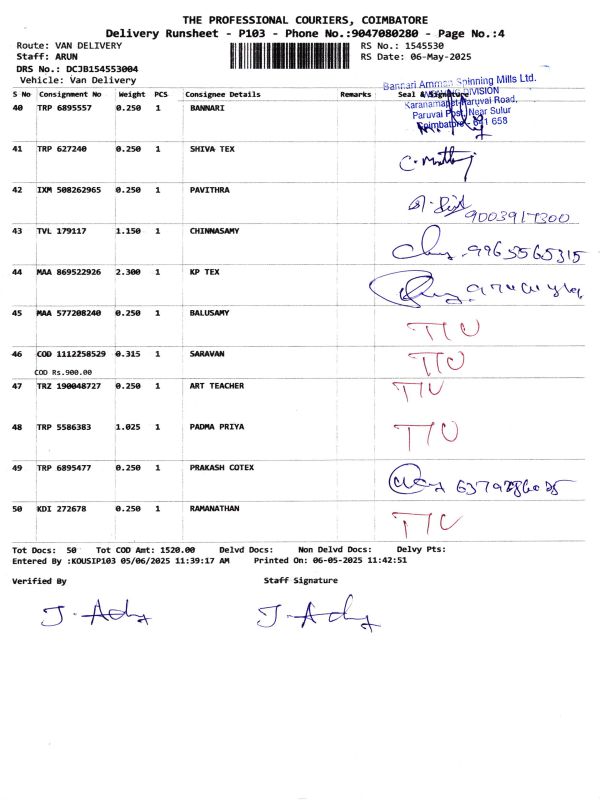 THE PROFESSIONAL COURIERS, COIMBATORE
Delivery Runsheet - P103 - Phone No.:9047080280 - Page No.:4
Route: VAN DELIVERY RS No.: 1545530
Staff: ARUN RS Date: 06-May-2025
DRS No.: DCJB154553004
Vehicle: Van Delivery
Bannari Amman Spinning Mills Ltd.
DIVISION
S No Consignment No Weight PCS Consignee Details Remarks Seal & Signature
Karanampet-Paruvai Road,
40 TRP 6895557 0.250 1 BANNARI
Paruvai Post, Near Sulur
Coimbatore - 641 658
41 TRP 627240 0.250 1 SHIVA TEX
42 IXM 508262965 0.250 1 PAVITHRA
9003917300
43 TVL 179117 1.150 1 CHINNASAMY
9965565315
44 MAA 869522926 2.300 1 KP TEX
45 MAA 577208240 0.250 1 BALUSAMY T/U
46 COD 1112258529 0.315 1 SARAVAN T/U
COD Rs.900.00
47 TRZ 190048727 0.250 1 ART TEACHER T/U
48 TRP 5586383 1.025 1 PADMA PRIYA T/U
49 TRP 6895477 0.250 1 PRAKASH COTEX
50 KDI 272678 0.250 1 RAMANATHAN T/U
Tot Docs: 50 Tot COD Amt: 1520.00 Delvd Docs: Non Delvd Docs: Delvy Pts:
Entered By :KOUSIP103 05/06/2025 11:39:17 AM Printed On: 06-05-2025 11:42:51
Verified By Staff Signature